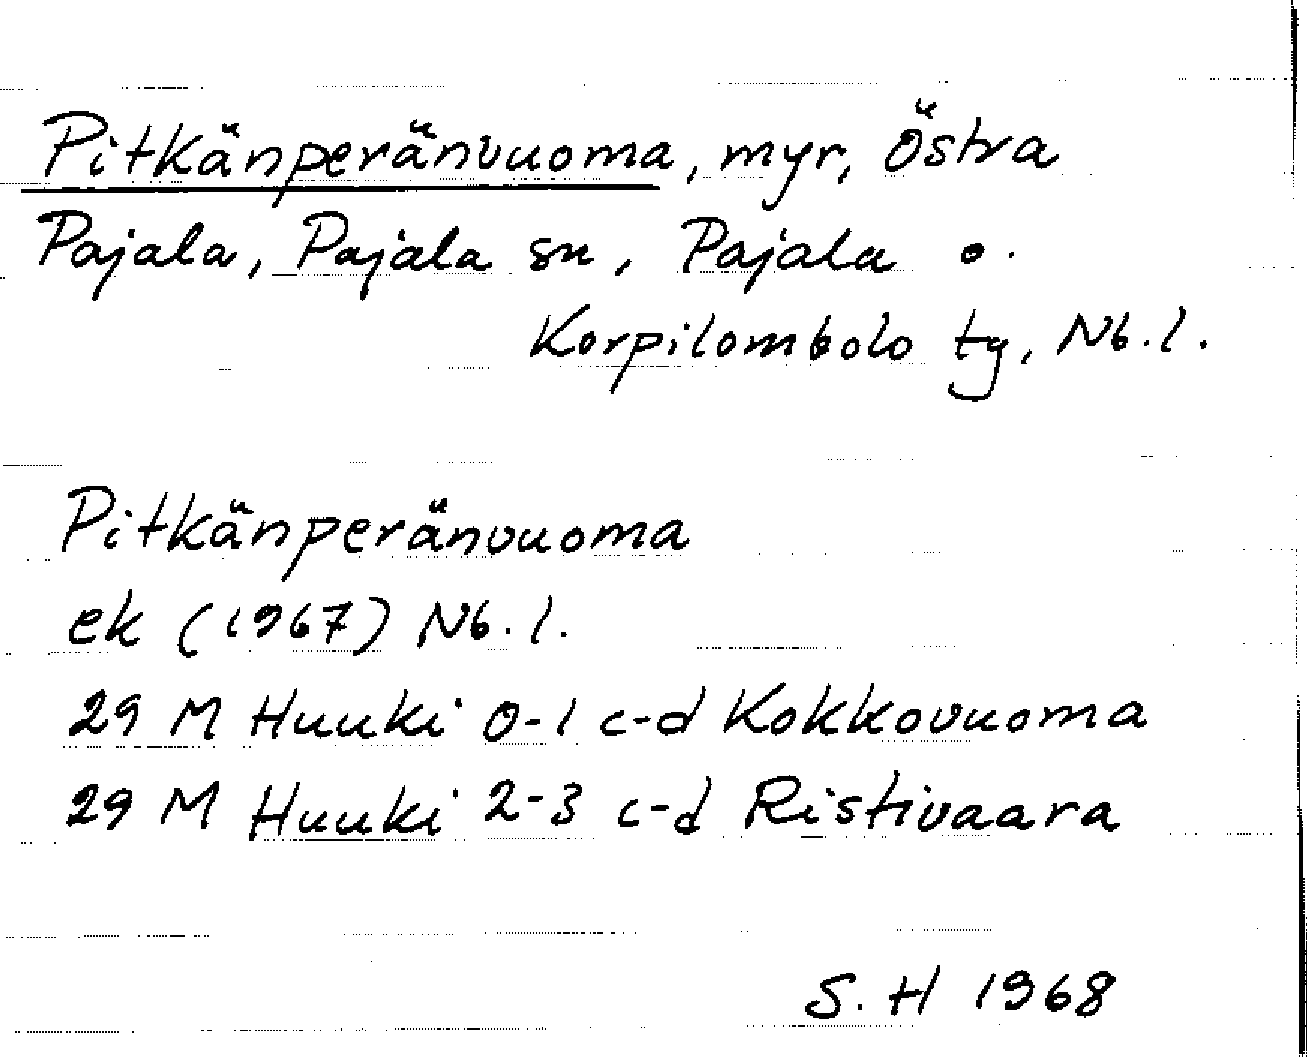 Pitkänperänvuoma, myr, Östra
Pajala, Pajala sn, Pajala o.
Korpilombolo tg, Nb.l.
Pitkänperänvuoma
ek (1967) Nb.l.
29 M Huuki 0-1 c-d Kokkovuoma
29 M Huuki 2-3 c-d Ristivaara
S.H 1968